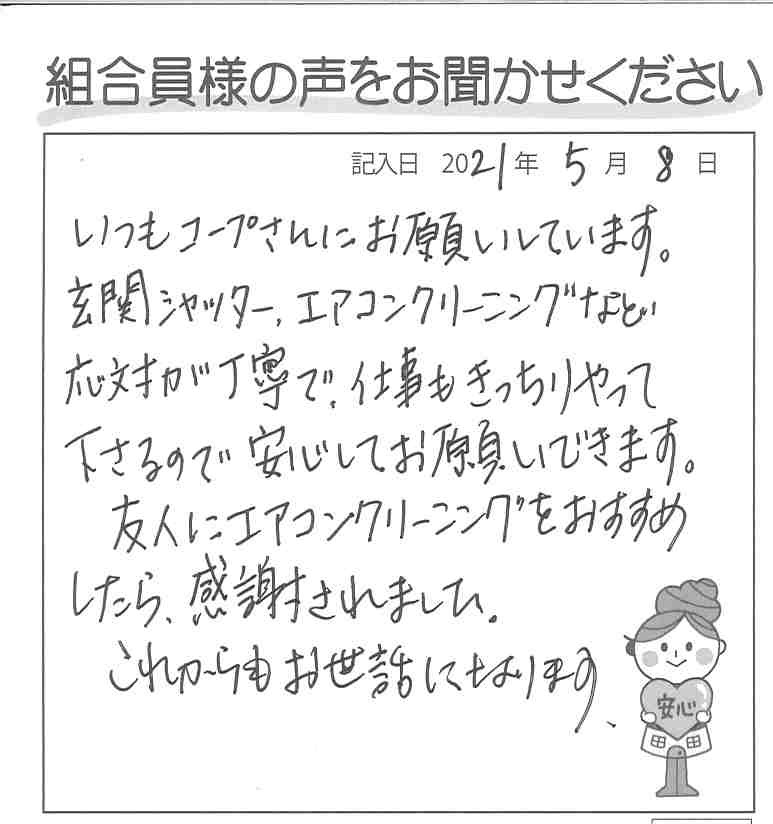 組合員様の声をお聞かせください
記入日 2021年 5月 8日
いつもコープさんにお願いしています。
玄関シャッター、エアコンクリーニングなど
応対が丁寧で、仕事もきっちりやって
下さるので安心してお願いできます。
友人にエアコンクリーニングをおすすめ
したら、感謝されました。
これからもお世話になります、
安心